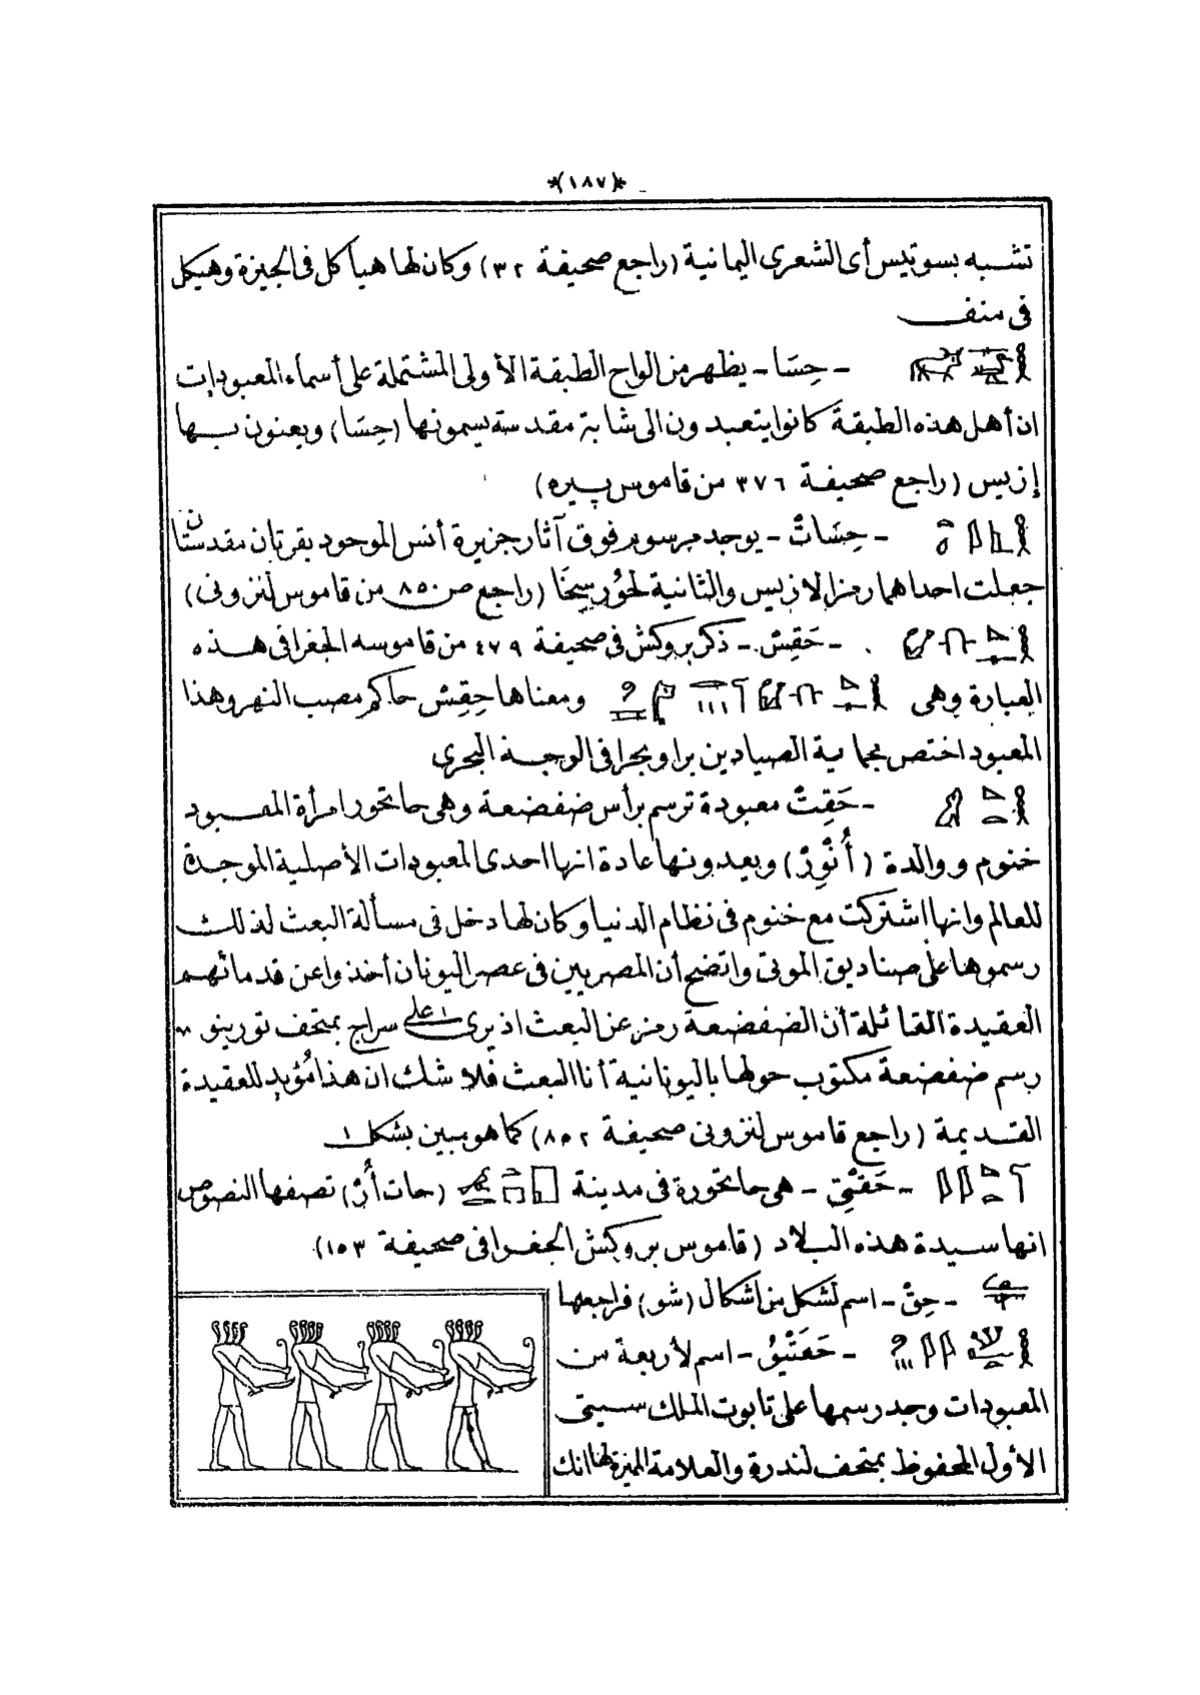 *(١٨٧)*
تشبه بسوتيس أى الشعرى اليمانية (راجع صحيفة ٣٢) وكان لها هيأكل فى الجيزة وهيكل
فى منف
- حِسَا - يظهر من الواح الطبقة الأولى المشتملة على أسماء المعبودات
ان أهل هذه الطبقة كانوا يتعبدون الى شابة مقدسة يسمونها (حِسَا) ويعنون بها
إزيس (راجع صحيفة ٣٧٦ من قاموس پيره)
- حِسَاتْ - يوجد مرسوم فوق آثار جزيرة أنس الموجود بقرتان مقدستان
جعلت احداهما رمزا لازيس والثانية لحُور سِخَا (راجع ص ٨٥٠ من قاموس لنزونى)
- حَقِسْ - ذكر بروكش فى صحيفة ٤٧٩ من قاموسه الجغرافى هذه
العبارة وهى ومعناها حِقِسْ حاكم مصب النهر وهذا
المعبود اختص بحماية الصيادين برا وبحرا فى الوجه البحرى
- حَقِتْ معبودة ترسم برأس ضفضعة وهى حاتحور امرأة المعبود
خنوم ووالدة (أُنُوِرْ) ويعدونها عادة انها احدى المعبودات الأصلية الموجدة
للعالم وانها اشتركت مع خنوم فى نظام الدنيا وكان لها دخل فى مسألة البعث لذلك
رسموها على صناديق الموتى واتضح أن المصريين فى عصر اليونان أخذوا عن قدمائهم
العقيدة القائلة أن الضفضعة رمز عن البعث اذ يرى ١ على سراج بمتحف تورينو
رسم ضفضعة مكتوب حولها باليونانية أنا البعث فلا شك ان هذا مُؤيد للعقيدة
القديمة (راجع قاموس لنزونى صحيفة ٨٥٢) كما هو مبين بشكل ١
- حَقْتِى - هى حاتحورة فى مدينة (حات أُنْ) تصفها النصوص
انها سيدة هذه البلاد (قاموس بروكش الجغرافى صحيفة ١٥٣).
- حِقْ - اسم لشكل من اشكال (شو) فراجعها
- حَفَتْيُو - اسم لأربعة من
المعبودات وجد رسمها على تابوت الملك سيتى
الأول المحفوظ بمتحف لندرة والعلامة المميزة لها انك